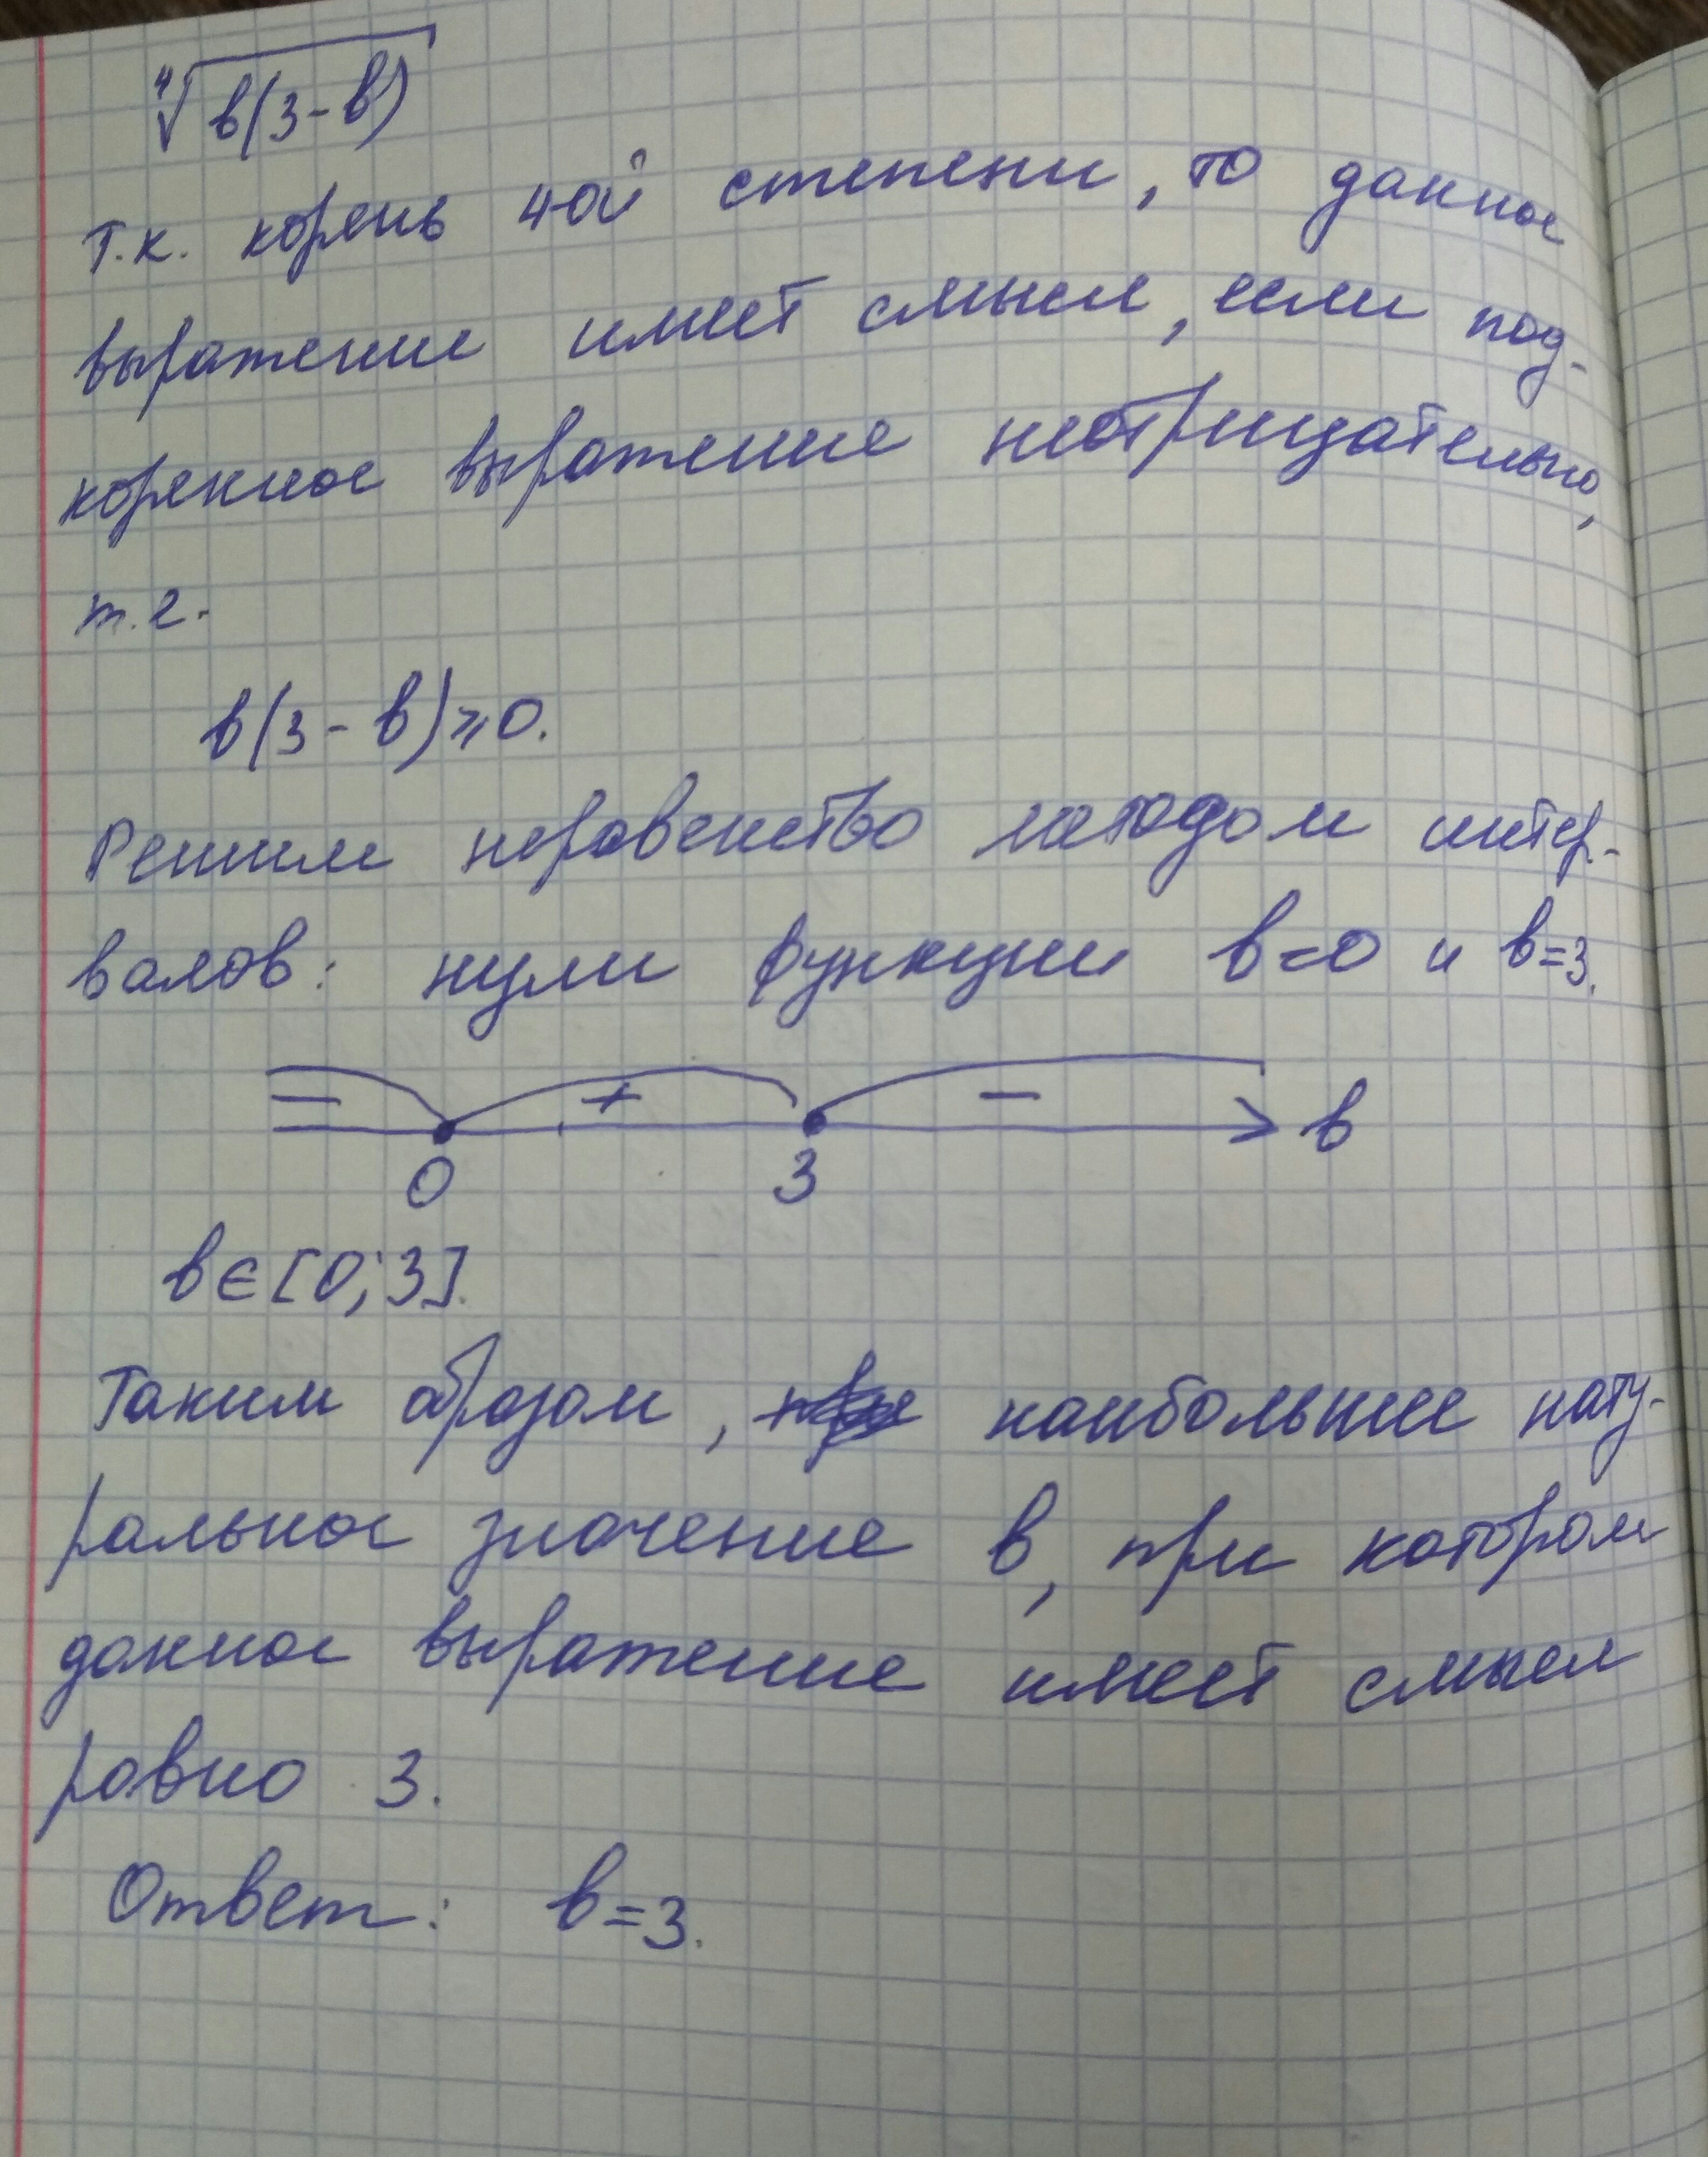 ⁴√в(3-в)
т.к. корень 4ой степени, то данное
выражение имеет смысл, если под-
коренное выражение неотрицательно,
т.е.
в(3-в)⩾0.
Решим неравенство методом интер-
валов: нули функции в=0 и в=3.
− + − в
0 3
в∈[0;3].
Таким образом, наибольшее нату-
ральное значение в, при котором
данное выражение имеет смысл
равно 3.
Ответ: в=3.